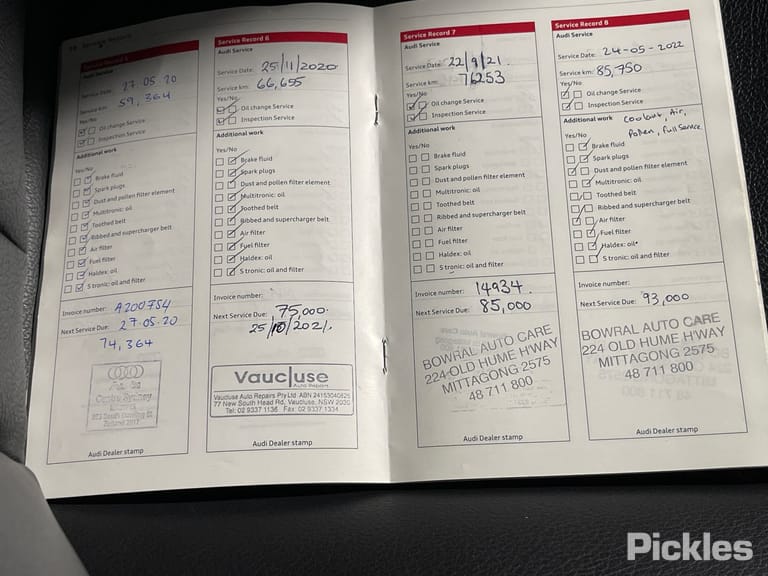 Service Record
Service Record 5
Audi Service
Service Date: 27.05.20
Service km: 59,364
Yes/No
Oil change Service
Inspection Service
Additional work
Yes/No
Brake fluid
Spark plugs
Dust and pollen filter element
Multitronic: oil
Toothed belt
Ribbed and supercharger belt
Air filter
Fuel filter
Haldex: oil
S tronic: oil and filter
Invoice number: A200754
Next Service Due:
27.05.20
74,364
Centre Sydney
Audi Dealer stamp
Service Record 6
Audi Service
Service Date: 25/11/2020
Service km: 66,655
Yes/No
Oil change Service
Inspection Service
Additional work
Yes/No
Brake fluid
Spark plugs
Dust and pollen filter element
Multitronic: oil
Toothed belt
Ribbed and supercharger belt
Air filter
Fuel filter
Haldex: oil
S tronic: oil and filter
Invoice number:
Next Service Due: 75,000.
25/10/2021.
Vaucluse
Auto Repairs
Vaucluse Auto Repairs Pty Ltd ABN 24153040625
77 New South Head Rd, Vaucluse, NSW 2030
Tel: 02 9337 1136 Fax: 02 9337 1334
Audi Dealer stamp
Service Record 7
Audi Service
Service Date: 22/9/21.
Service km: 76253
Yes/No
Oil change Service
Inspection Service
Additional work
Yes/No
Brake fluid
Spark plugs
Dust and pollen filter element
Multitronic: oil
Toothed belt
Ribbed and supercharger belt
Air filter
Fuel filter
Haldex: oil
S tronic: oil and filter
Invoice number: 14934.
Next Service Due: 85,000
BOWRAL AUTO CARE
224 OLD HUME H'WAY
MITTAGONG 2575
48 711 800
Audi Dealer stamp
Service Record 8
Audi Service
Service Date: 24-05-2022
Service km: 85,750
Yes/No
Oil change Service
Inspection Service
Additional work Coolant, Air,
Pollen, Full Service
Yes/No
Brake fluid
Spark plugs
Dust and pollen filter element
Multitronic: oil
Toothed belt
Ribbed and supercharger belt
Air filter
Fuel filter
Haldex: oil*
S tronic: oil and filter
Invoice number:
Next Service Due: 93,000
BOWRAL AUTO CARE
224 OLD HUME H'WAY
MITTAGONG 2575
48 711 800
Audi Dealer stamp
Pickles